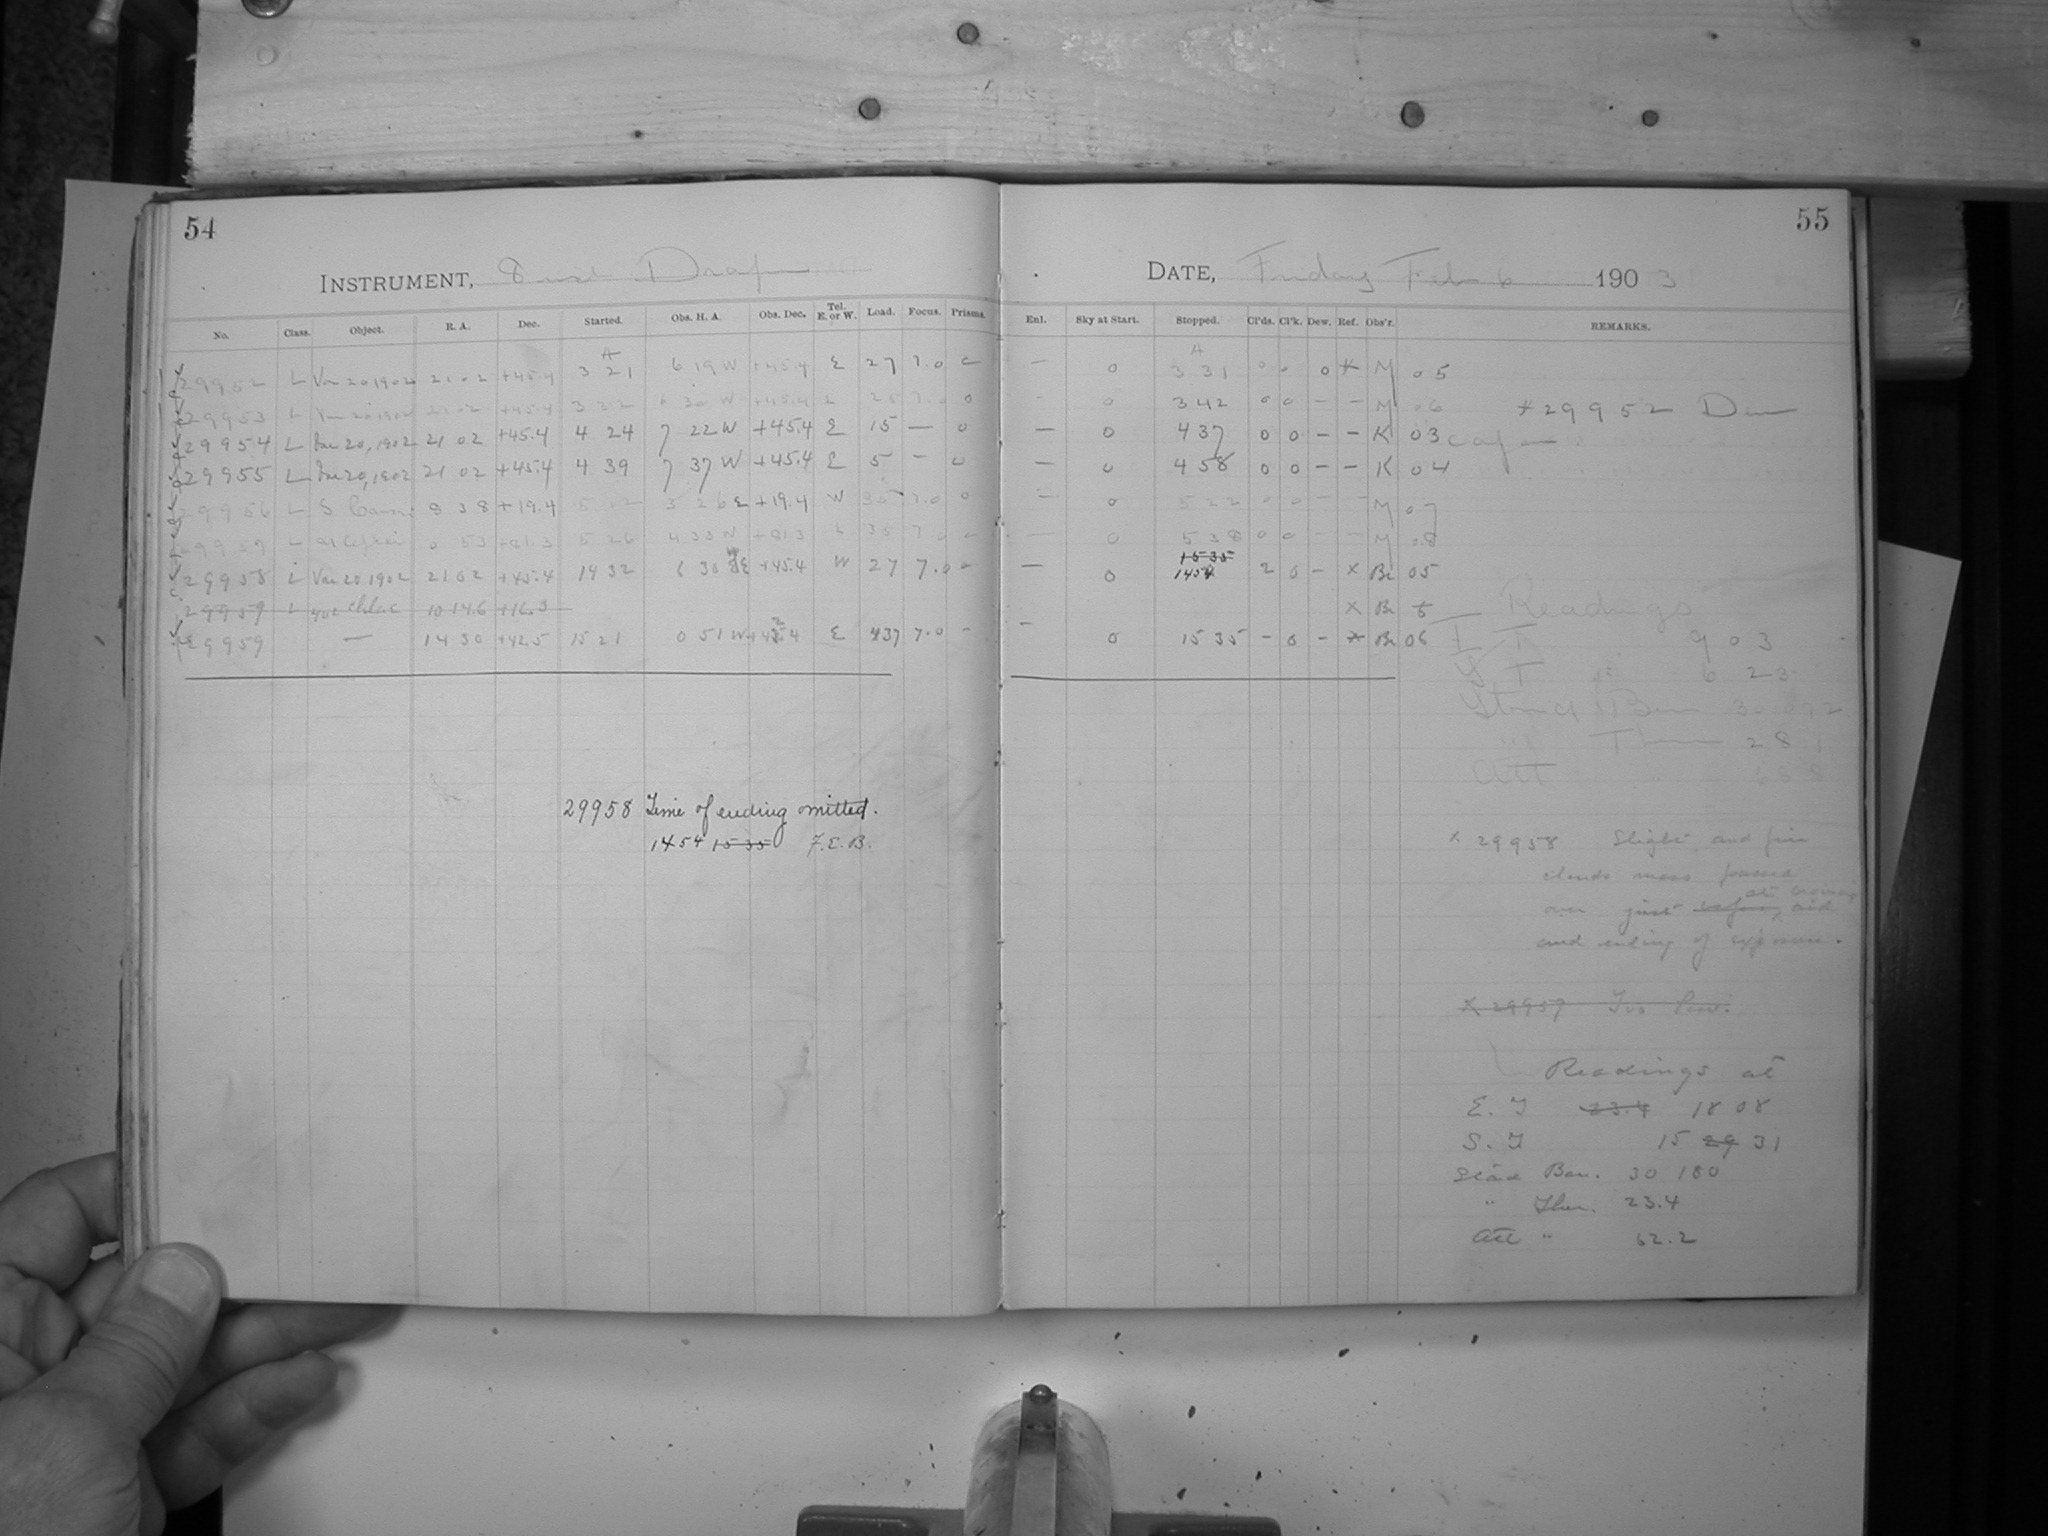 54
INSTRUMENT, 8 inch Draper
No. Class. Object. R. A. Dec. Started. Obs. H. A. Obs. Dec. Tel. E. or W. Load. Focus. Prisms.
29952 L Var 20 1902 21 02 +45.4 3 21 6 19 W +45.4 E 27 7.0 0
29953 L Var 20 1902 21 02 +45.4 3 32 6 30 W +45.4 E 25 7.0 0
29954 L Var 20, 1902 21 02 +45.4 4 24 7 22 W +45.4 E 15 — 0
29955 L Var 20, 1902 21 02 +45.4 4 39 7 37 W +45.4 E 5 – 0
29956 L S Cancri 8 38 +19.4 5 12 3 26 E +19.4 W 35 7.0 0
29957 L U Cephei 0 53 +81.3 5 26 4 33 W +81.3 E 35 7.0
29958 L Var 20 1902 21 02 +45.4 14 32 6 30 E +45.4 W 27 7.0 –
29959 L 10 14.6 +16.3
29959 — 14 30 +42.5 15 21 0 51 W E 37 7.0 –
29958 Time of ending omitted.
1454 1535 F.E.B.
55
DATE, Friday Feb 6 1903
Enl. Sky at Start. Stopped. Cl'ds. Cl'k. Dew. Ref. Obs'r. REMARKS.
— 0 3 31 0 0 0 * M 05
– 0 3 42 0 0 – – M 06 *29952 Dew
— 0 4 37 0 0 – – K 03 cap
— 0 4 58 0 0 – – K 04
– 0 5 22 0 0 – – M 07
— 0 5 38 0 0 – – M 08
1535
— 0 1454 2 0 – x Br 05
x Br
– 0 15 35 – 0 – x Br 06
Readings
E T 9 03
S T 6 23
Stand Bar 30 092
" Ther 28 1
Att " 68 8
x 29958 Slight and fine
clouds mass passed
over just before at beginning and
and ending of exposure.
x 29959 Too low.
Readings at
E. T 23.4 18 08
S. T 15 29 31
Stand Bar. 30 180
" Ther. 23.4
Att " 62.2